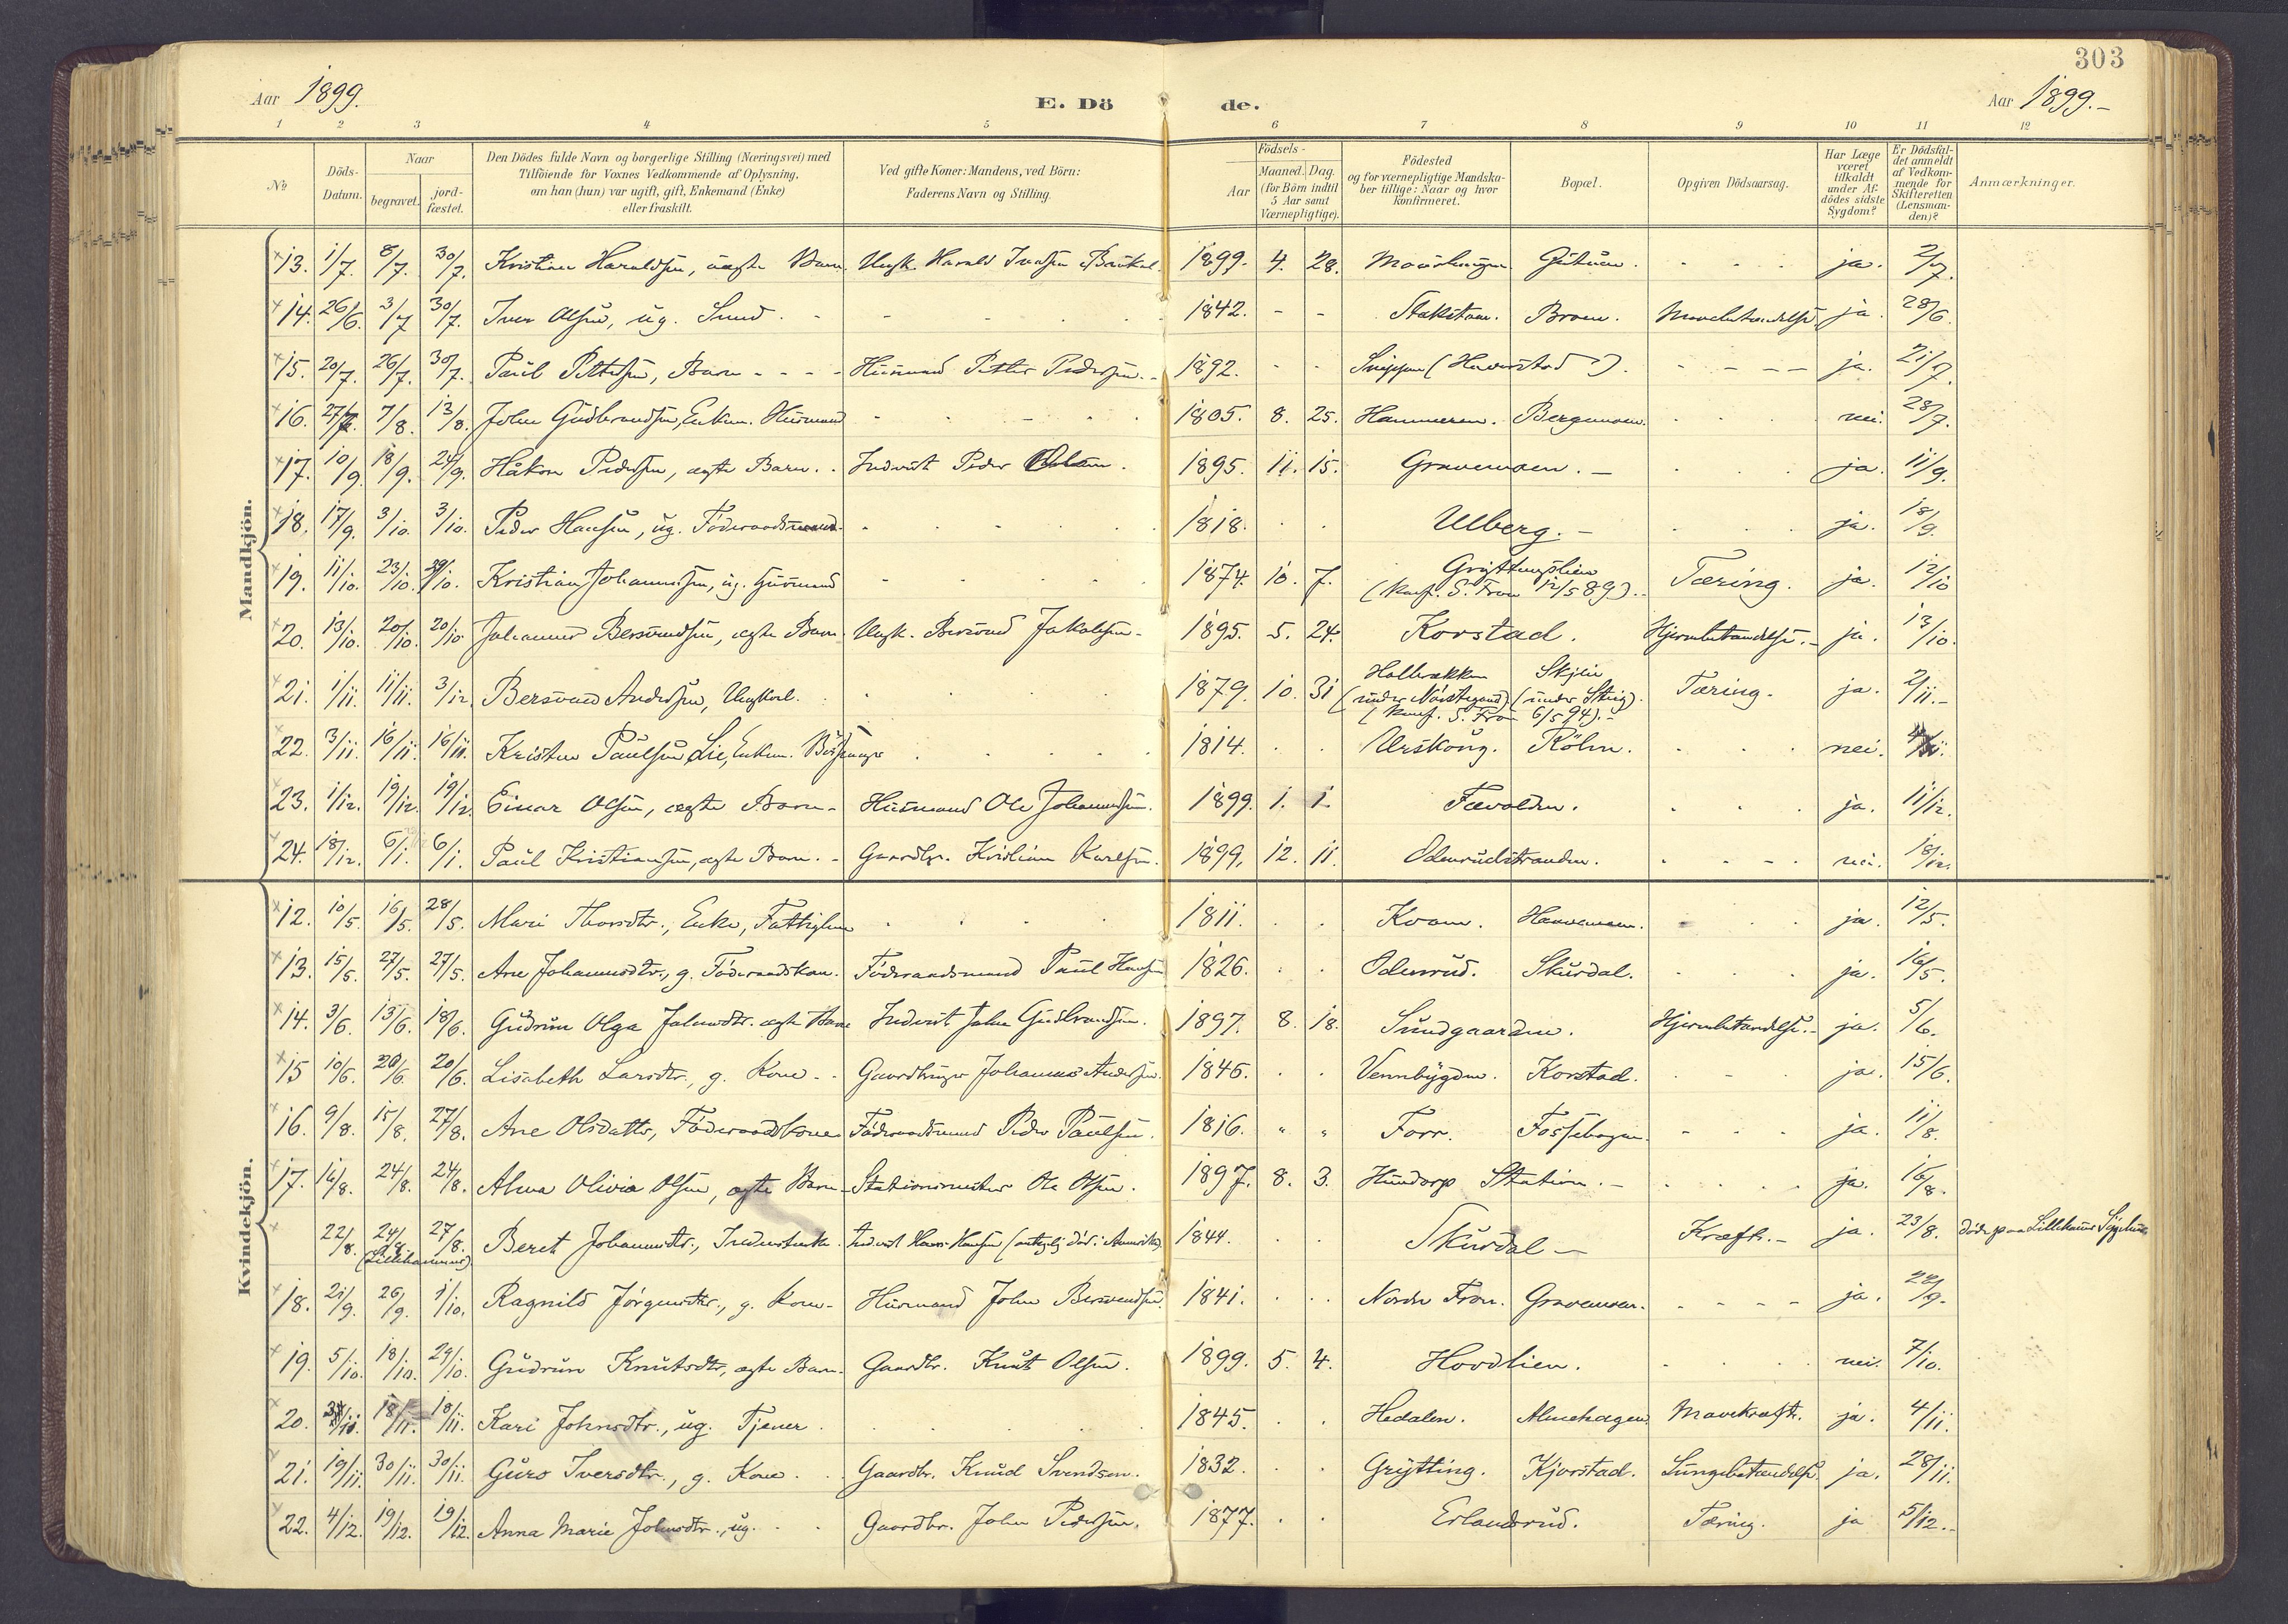 303
Aar 1899.
E. Döde.
Aar 1899.-
1 2 3 4 5 6 7 8 9 10 11 12
No
Döds-Datum.
Naar
begravet.
jordfæstet.
Den Dödes fulde Navn og borgerlige Stilling (Næringsvei) med
Tilföiende for Voxnes Vedkommende af Oplysning,
om han (hun) var ugift, gift, Enkemand (Enke)
eller fraskilt.
Ved gifte Koner: Mandens, ved Börn:
Faderens Navn og Stilling.
Födsels-
Aar
Maaned. Dag.
(for Börn indtil
5 Aar samt
Værnepligtige).
Födested
og for værnepligtige Mandskaber tillige: Naar og hvor
konfirmeret.
Bopæl.
Opgiven Dödsaarsag.
Har Læge
været
tilkaldt
under Afdödes sidste
Sygdom?
Er Dödsfaldet anmeldt
af Vedkommende for
Skifteretten
(Lensmanden)?
Anmærkninger.
Mandkjön.
13. 1/7. 8/7. 30/7. Kristian Haraldsen, uægte Barn. Ungk. Harald 1899. 4. 28. - - - ja. 2/7.
14. 26/6. 3/7 30/7. Iver Olsen, ug. - - - 1842. - - Stakston. Broen. Mavebetændelse ja. 28/6.
15. 20/7. 26/7. 30/7. Paul Pettersen, Barn - - - - Husmand Petter Pedersen. - 1892. - - ( Haverstad ?). - - - - ja. 21/7.
16. 27/7. 7/8. 13/8. John Gudbrandsen, Enkem. Husmand - - - 1805. 8. 25. Hammeren. Bergemoen. nei. 28/7.
17. 10/9. 18/9. 24/9. Håkon Pedersen, ægte Barn. Inderst Peder 1895. 11. 15. Gravemoen. - ja. 11/9.
18. 17/9. 3/10. 3/10. Peder Hansen, ug. Föderaadsmand. 1818. Ulberg. - ja. 18/9.
19. 11/10. 23/10. 29/10. Kristian Johannessen, ug. Husmand 1874. 10. 7. Gryttingslien
(Konf. S. Fron 12/5 89). Tæring. ja. 12/10
20. 13/10. 20/10. 20/10 Johannes Bersvendsen, ægte Barn. Ungk. Bersvend Jakobsen - 1895. 5. 24. Korstad. Hjernebetændelse. - ja. 13/10.
21. 1/11. 11/11. 3/12. Bersvend Andersen, Ungkarl. 1879. 10. 31 Skjein
(under Nörstegaard) (under Steig).
(Konf. S. Fron 6/5 94). - Tæring. ja. 2/11. -
22. 3/11. 16/11. 16/11. Kristen Paulsen Lie, Enkem. 1814. Urskoug. nei.
23. 1/12. 19/12. 19/12. Einar Olsen, ægte Barn - Husmand Ole Johannessen. 1899. 1. 1. ja. 11/12.
24. 18/12. 6/1. 6/1. Paul Kristiansen, ægte Barn. - Gaardbr. Kristian Karlsen. 1899. 12. 11. Odenrudstranden. nei. 18/12.
Kvindekjön.
12. 10/5. 16/5. 28/5. Mari Thorsdtr., Enke, Fattiglem 1811. Kvam. ja. 12/5.
13. 15/5. 27/5. 27/5. Ane Johannesdtr., g. Föderaadskone. Föderaadsmand Paul Hansen 1826. Odenrud. Skurdal. ja. 16/5.
14. 3/6. 13/6. 18/6. Gudrun Olga Johnsdtr. ægte Barn Inderst John Gudbrandsen. 1897. 8. 18. Sundgaarden. Hjernebetændelse. - ja. 5/6.
15 10/6. 20/6. 20/6. Lisabeth Larsdtr., g. Kone - - Gaardbruger Johannes Andersen. 1846. Vennbygden. Korstad. ja. 15/6.
16. 9/8. 15/8. 27/8. Ane Olsdatter, Föderaadskone Föderaadsmand Peder Paulsen. 1816. " " Forr. - - - ja. 11/8.
17. 14/8. 24/8. 24/8. Alma Olivia Olsen, ægte Barn - Stationsmester Ole Olsen. 1897. 8. 3. Hundorp Station. - ja. 16/8.
22/8. 24/8 (Lillehammer) 27/8. Beret Johannesdtr., Inderst Hans Hansen (antagelig död i Amerika). 1844. Skurdal - Kræft. - ja. 23/8. döde paa Lillehammer Sygehus
18. 21/9. 26/9. 1/10. Ragnild Jörgensdtr., g. Kone - Husmand John Bersvendsen. 1841. Nordre Fron. Gravemoen. - - - - ja. 22/9.
19. 5/10. 18/10. 29/10. Gudrun Knutsdtr, ægte Barn. Gaardbr. Knut Olsen. 1899. 5. 4. Hovdlien. nei. 7/10.
20. 18/11. 18/11. Kari Johnsdtr., ug. Tjener. 1845. Hedalen. Almehagen Mavekræft. ja. 4/11.
21. 19/11. 30/11. 30/11. Guro Iversdtr., g. Kone. Gaardbr. Knud Svendsen. 1832. Grytting. Kjorstad. Lungebetændelse. ja. 28/11.
22. 4/12. 19/12. 19/12. Anna Marie Johnsdtr., ug. Gaardbr. John Pedersen. 1877. Erlandsrud. Tæring. ja 5/12. -